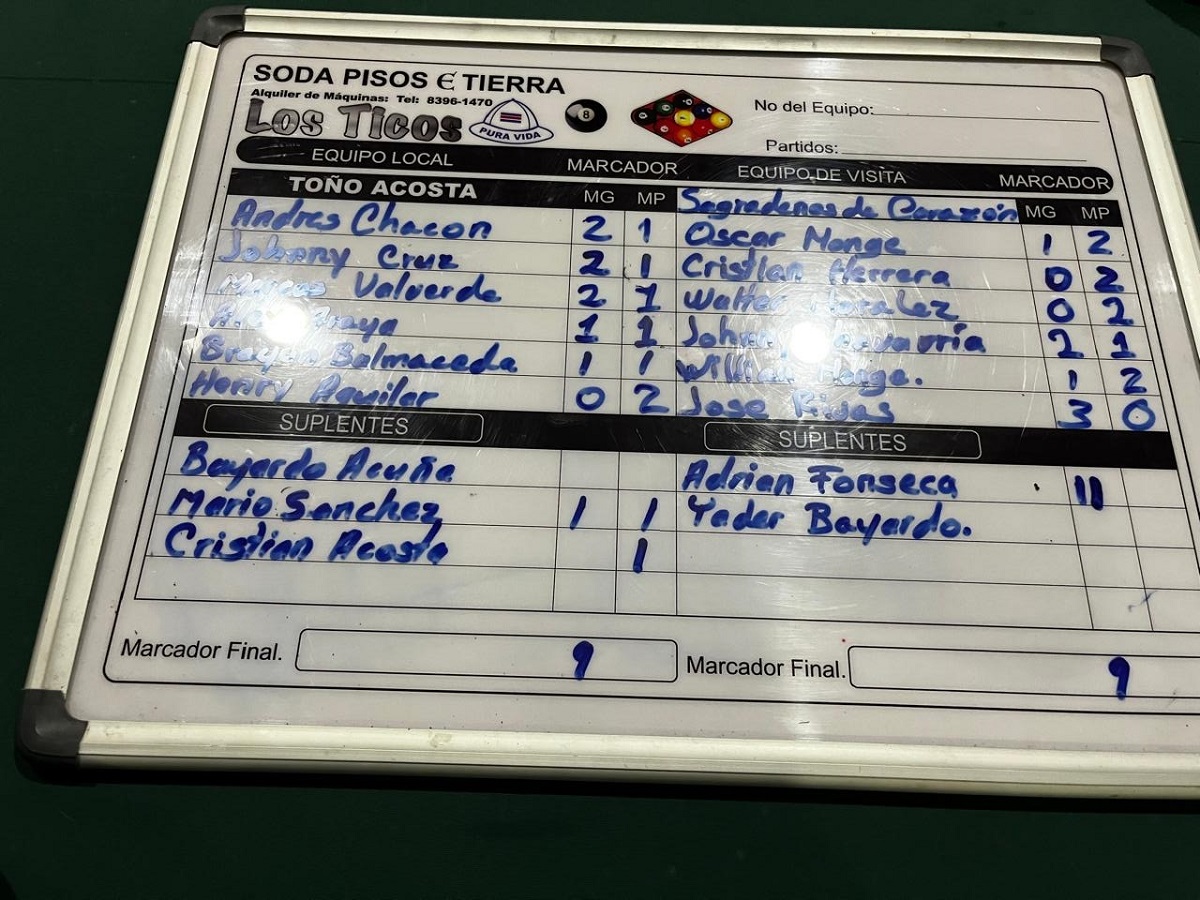 SODA PISOS E TIERRA
Alquiler de Máquinas: Tel: 8396-1470
Los Ticos
PURA VIDA
8
No del Equipo:
Partidos:
EQUIPO LOCAL MARCADOR EQUIPO DE VISITA MARCADOR
TOÑO ACOSTA MG MP Sagradenos de Corazón MG MP
Andres Chacon 2 1 Oscar Monge 1 2
Johnny Cruz 2 1 Cristian Herrera 0 2
Valverde 2 1 Walter 0 2
1 1 2 1
Brayan Balmaceda 1 1 1 2
Henry Aguilar 0 2 Jose Rivas 3 0
SUPLENTES SUPLENTES
Bayardo Acuña Adrian Fonseca 11
Mario Sanchez 1 1 Yader Bayardo.
Cristian Acosta 1
Marcador Final. 9 Marcador Final. 9